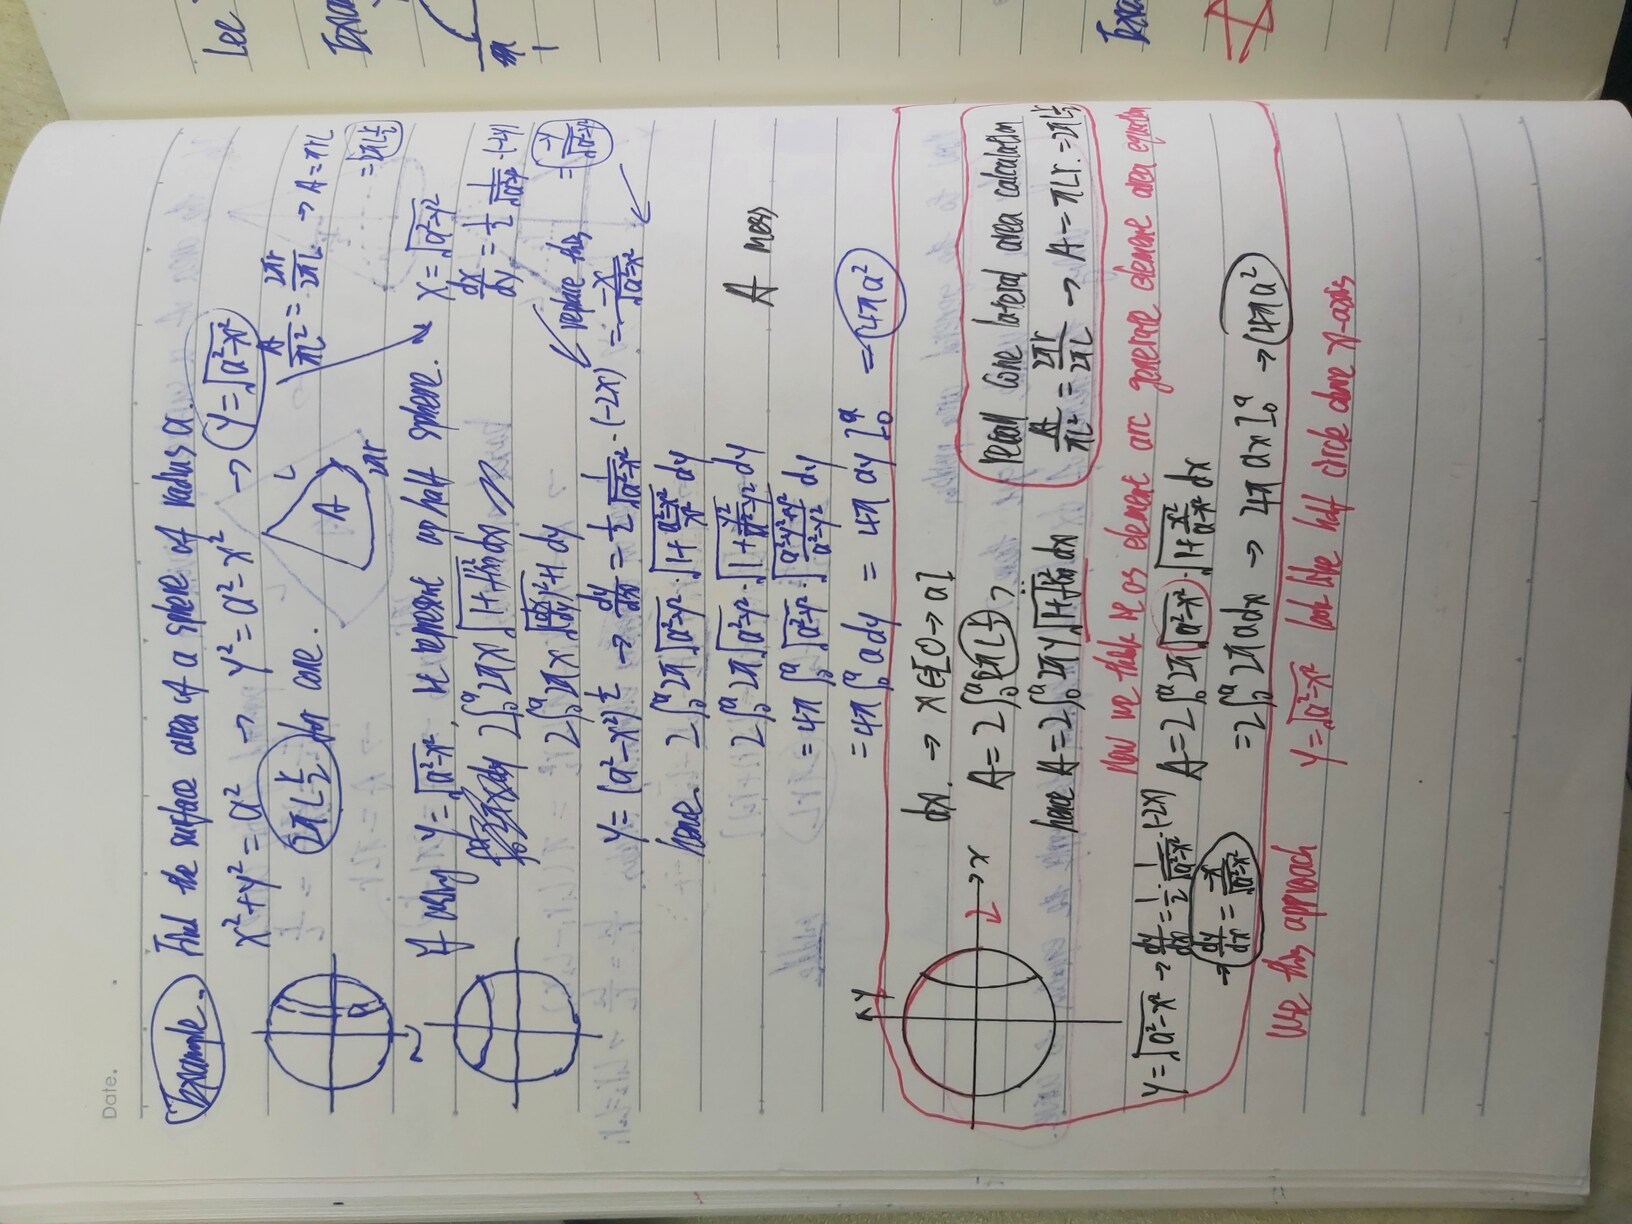 Date.
Example. Find the surface area of a sphere of radius a.
x²+y² = a² → y² = a²-x² → y=√(a²-x²)
2πL r/2 for cone.
L
A
2πr
A/πL² = 2πr/2πL → A = πrL
= 2πL r/2
If using y=√(a²-x²), it represent up half sphere. x=√(a²-y²)
2∫₀ᵃ 2πx √(1+f'(x)²) dx
dx/dy = 1/2 1/√(a²-y²) ·(-2y)
2∫₀ᵃ 2πx √((dx/dy)²+1) dy
replace this
= -y/√(a²-y²)
y = (a²-x²)^½ → dy/dx = 1/2 1/√(a²-x²) ·(-2x) = -x/√(a²-x²)
hence. 2∫₀ᵃ 2π √(a²-y²) · √(1+ (a²-x²)/x²) dy
2∫₀ᵃ 2π √(a²-y²) · √(1+ y²/(a²-y²)) dy
A mess
= 4π ∫₀ᵃ √(a²-y²) · √((a²-y²+y²)/(a²-y²)) dy
= 4π ∫₀ᵃ a dy = 4π ay ]₀ᵃ = 4πa²
y
x
dx. → x∈[0→a]
A = 2∫₀ᵃ 2πL r/2 ?
hence A = 2∫₀ᵃ 2πy √(1+f'(x)²) dx
recall cone lateral area calculation
A/πL² = 2πr/2πL → A = πLr. = 2πL r/2
now we think it as element arc generate element area equation
y=√(a²-x²) → dy/dx = 1/2 · 1/√(a²-x²) ·(-2x)
→ dy/dx = -x/√(a²-x²)
A = 2∫₀ᵃ 2π √(a²-x²) · √(1+ x²/(a²-x²)) dx
= 2∫₀ᵃ 2πa dx → 4π ax ]₀ᵃ → 4πa²
use this approach y=√(a²-x²) look like half circle above x-axis
Lec